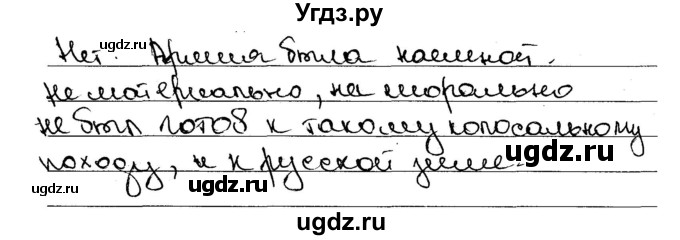 Угдз.ру
Нет. Армия была наемной.
ugdz.ru
ugdz.ru
не материально, не морально
не был готов к такому колосальному
походу, и к русской зиме.
ugdz.ru
ugdz.ru
ugdz.ru
ugdz.ru